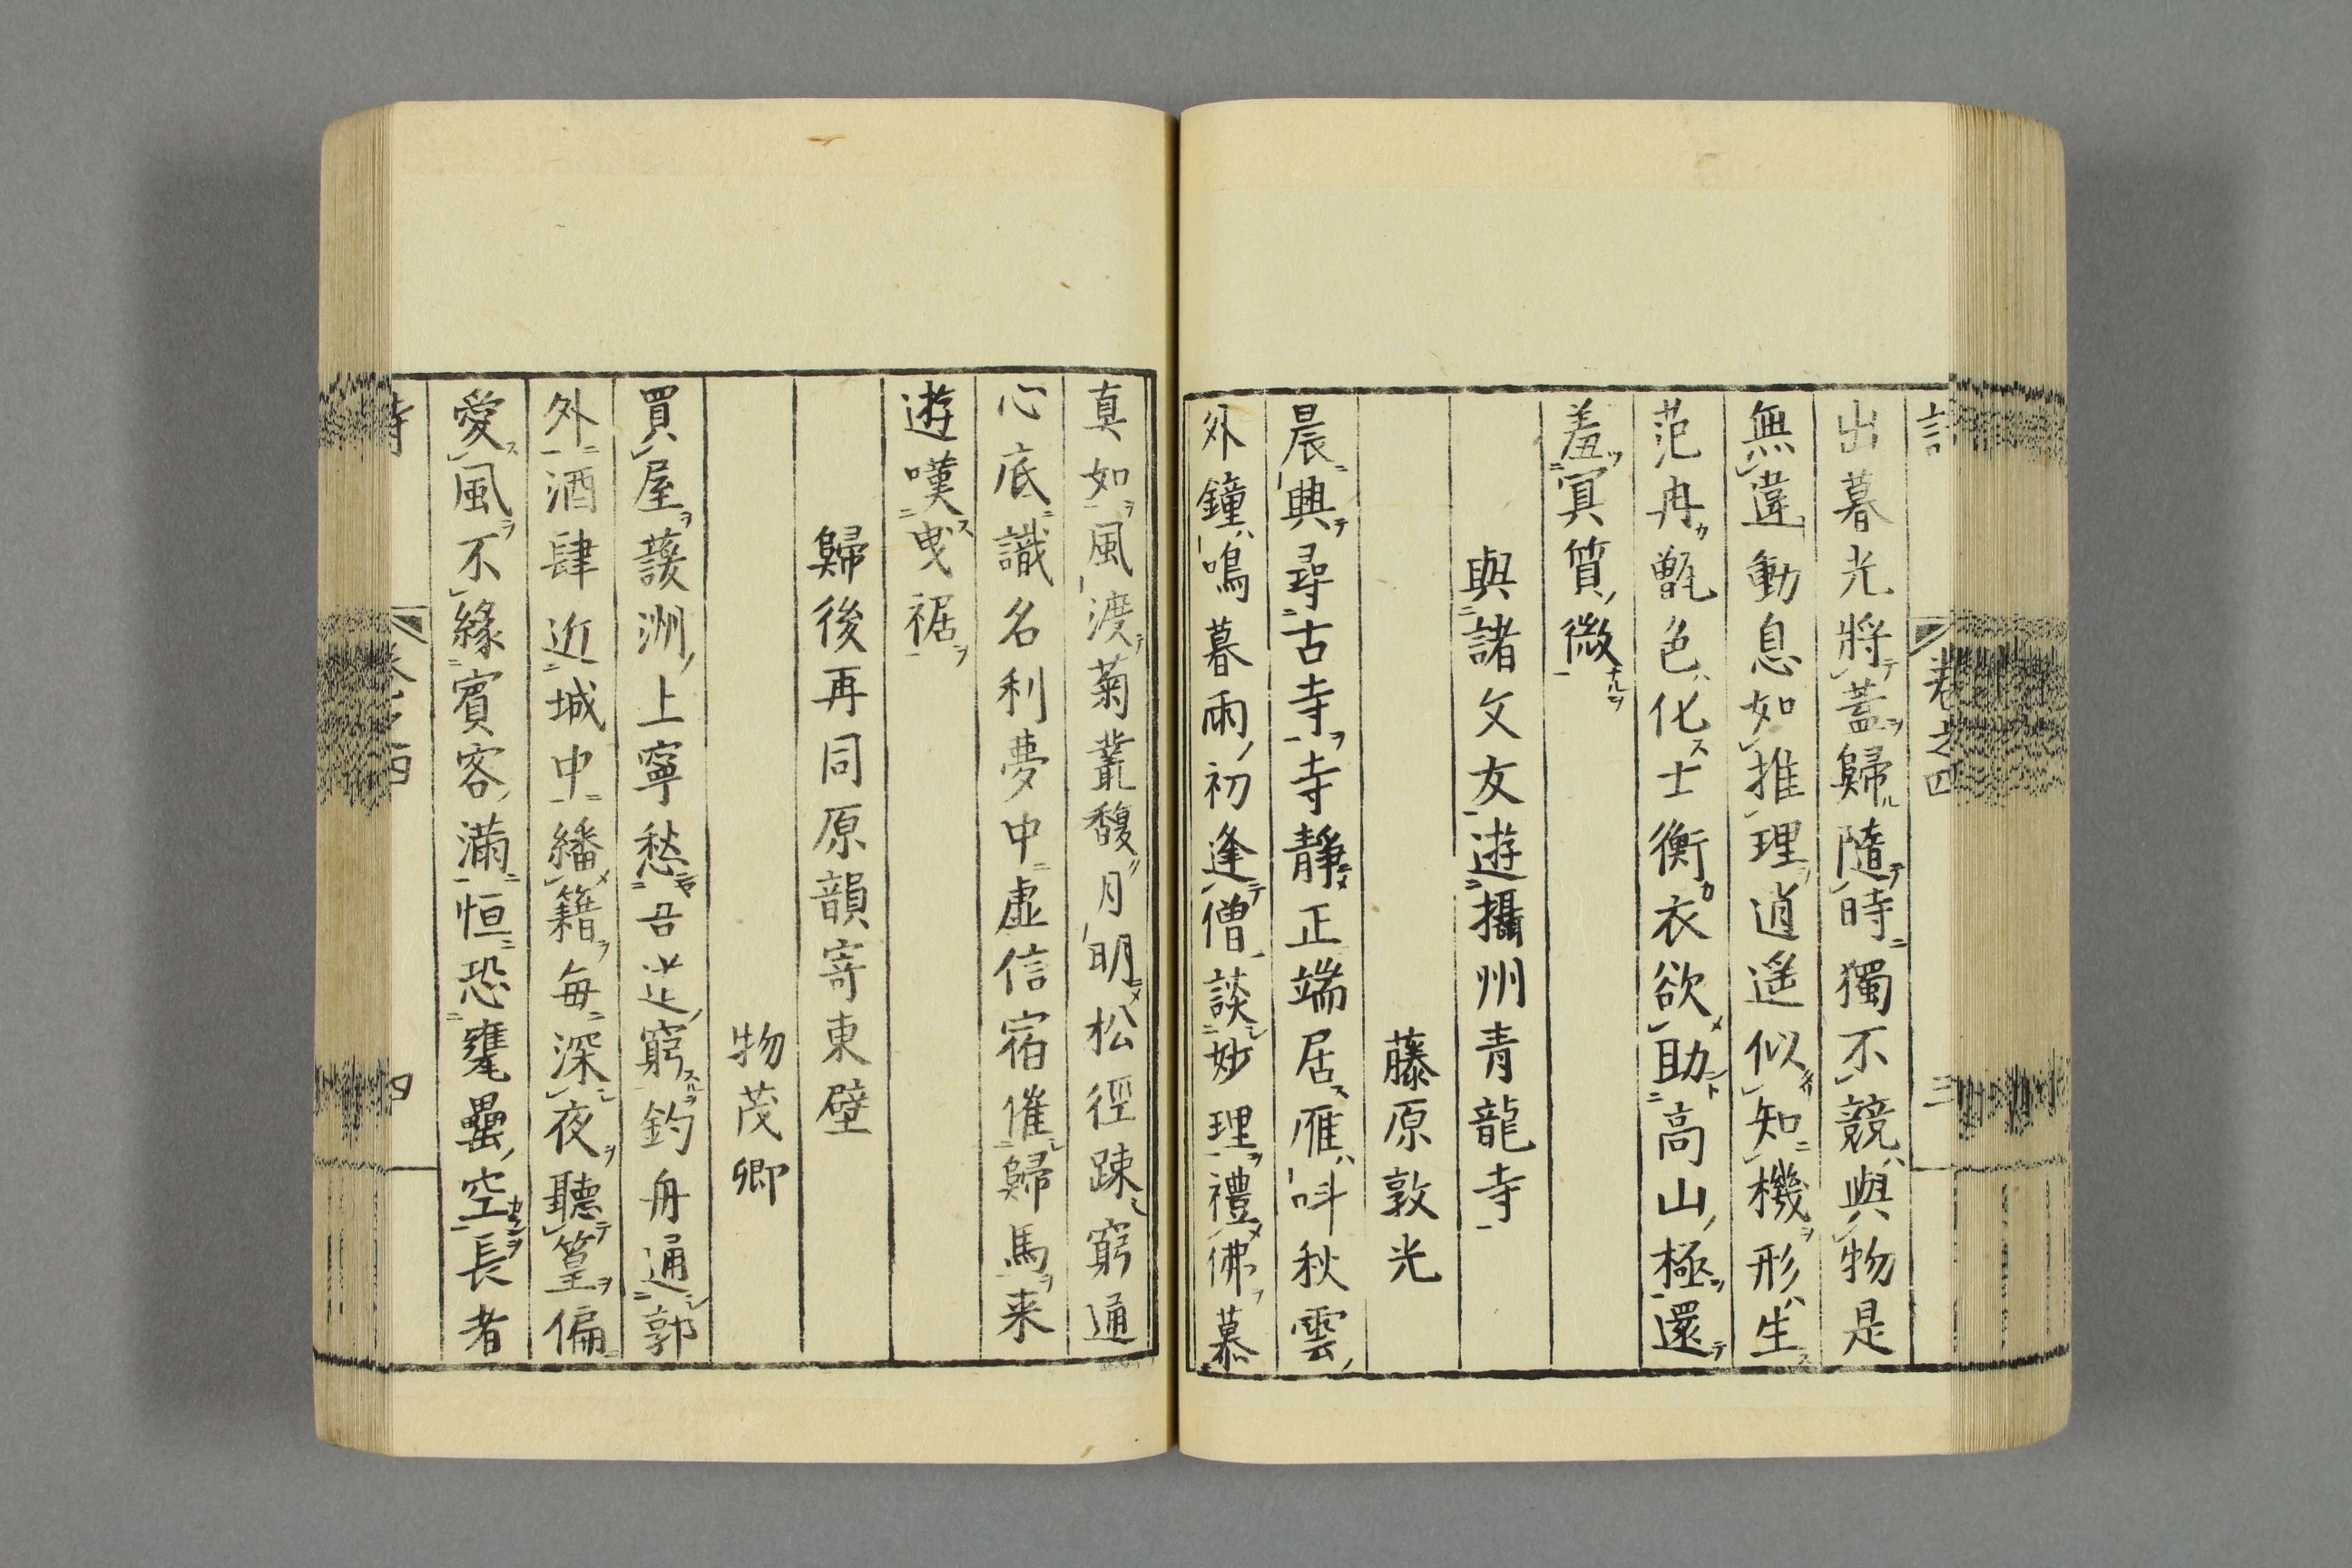 卷之四 三
出暮光將蓋歸隨時獨不競與物是
無違動息如推理逍遥似知機形生
范冉甑色化士衡衣欲助高山極還
羞冥質微
與諸文友遊攝州青龍寺
藤原敦光
晨興尋古寺寺靜正端居雁叫秋雲
外鐘鳴暮雨初逢僧談妙理禮佛慕
真如風渡菊叢馥月明松徑踈窮通
心底識名利夢中虛信宿催歸馬来
遊嘆曳裾
歸後再同原韻寄東壁
物茂卿
買屋蘐洲上寧愁吾道窮釣舟通郭
外酒肆近城中繙籍每深夜聽篁偏
愛風不緣賓客滿恒恐罍空長者